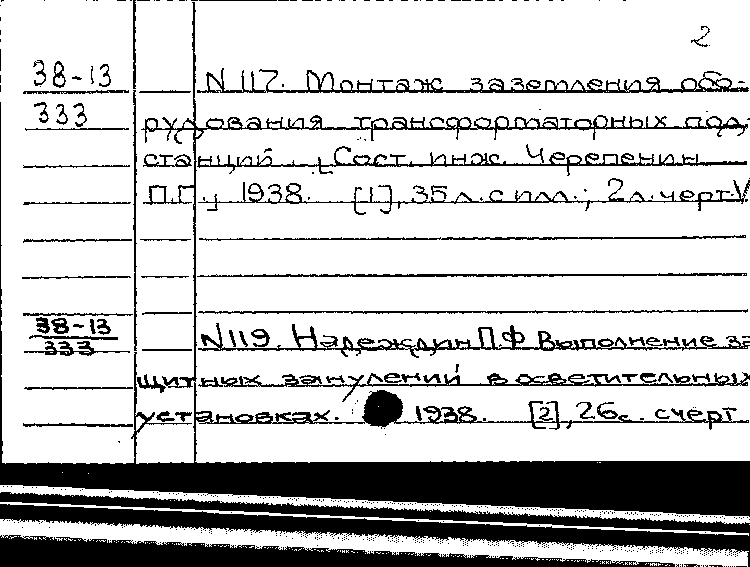 2
38-13 N 117. Монтаж заземления обо-
333 рудования трансформаторных под-
станций. [Сост. инж. Черепенин
П.Г.], 1938. [1], 35 л. с илл.; 2 л. черт. V
38-13
333 N 119. Надеждин П.Ф Выполнение за
щитных занулений в осветительных
установках. 1938. [2], 26 с. с черт